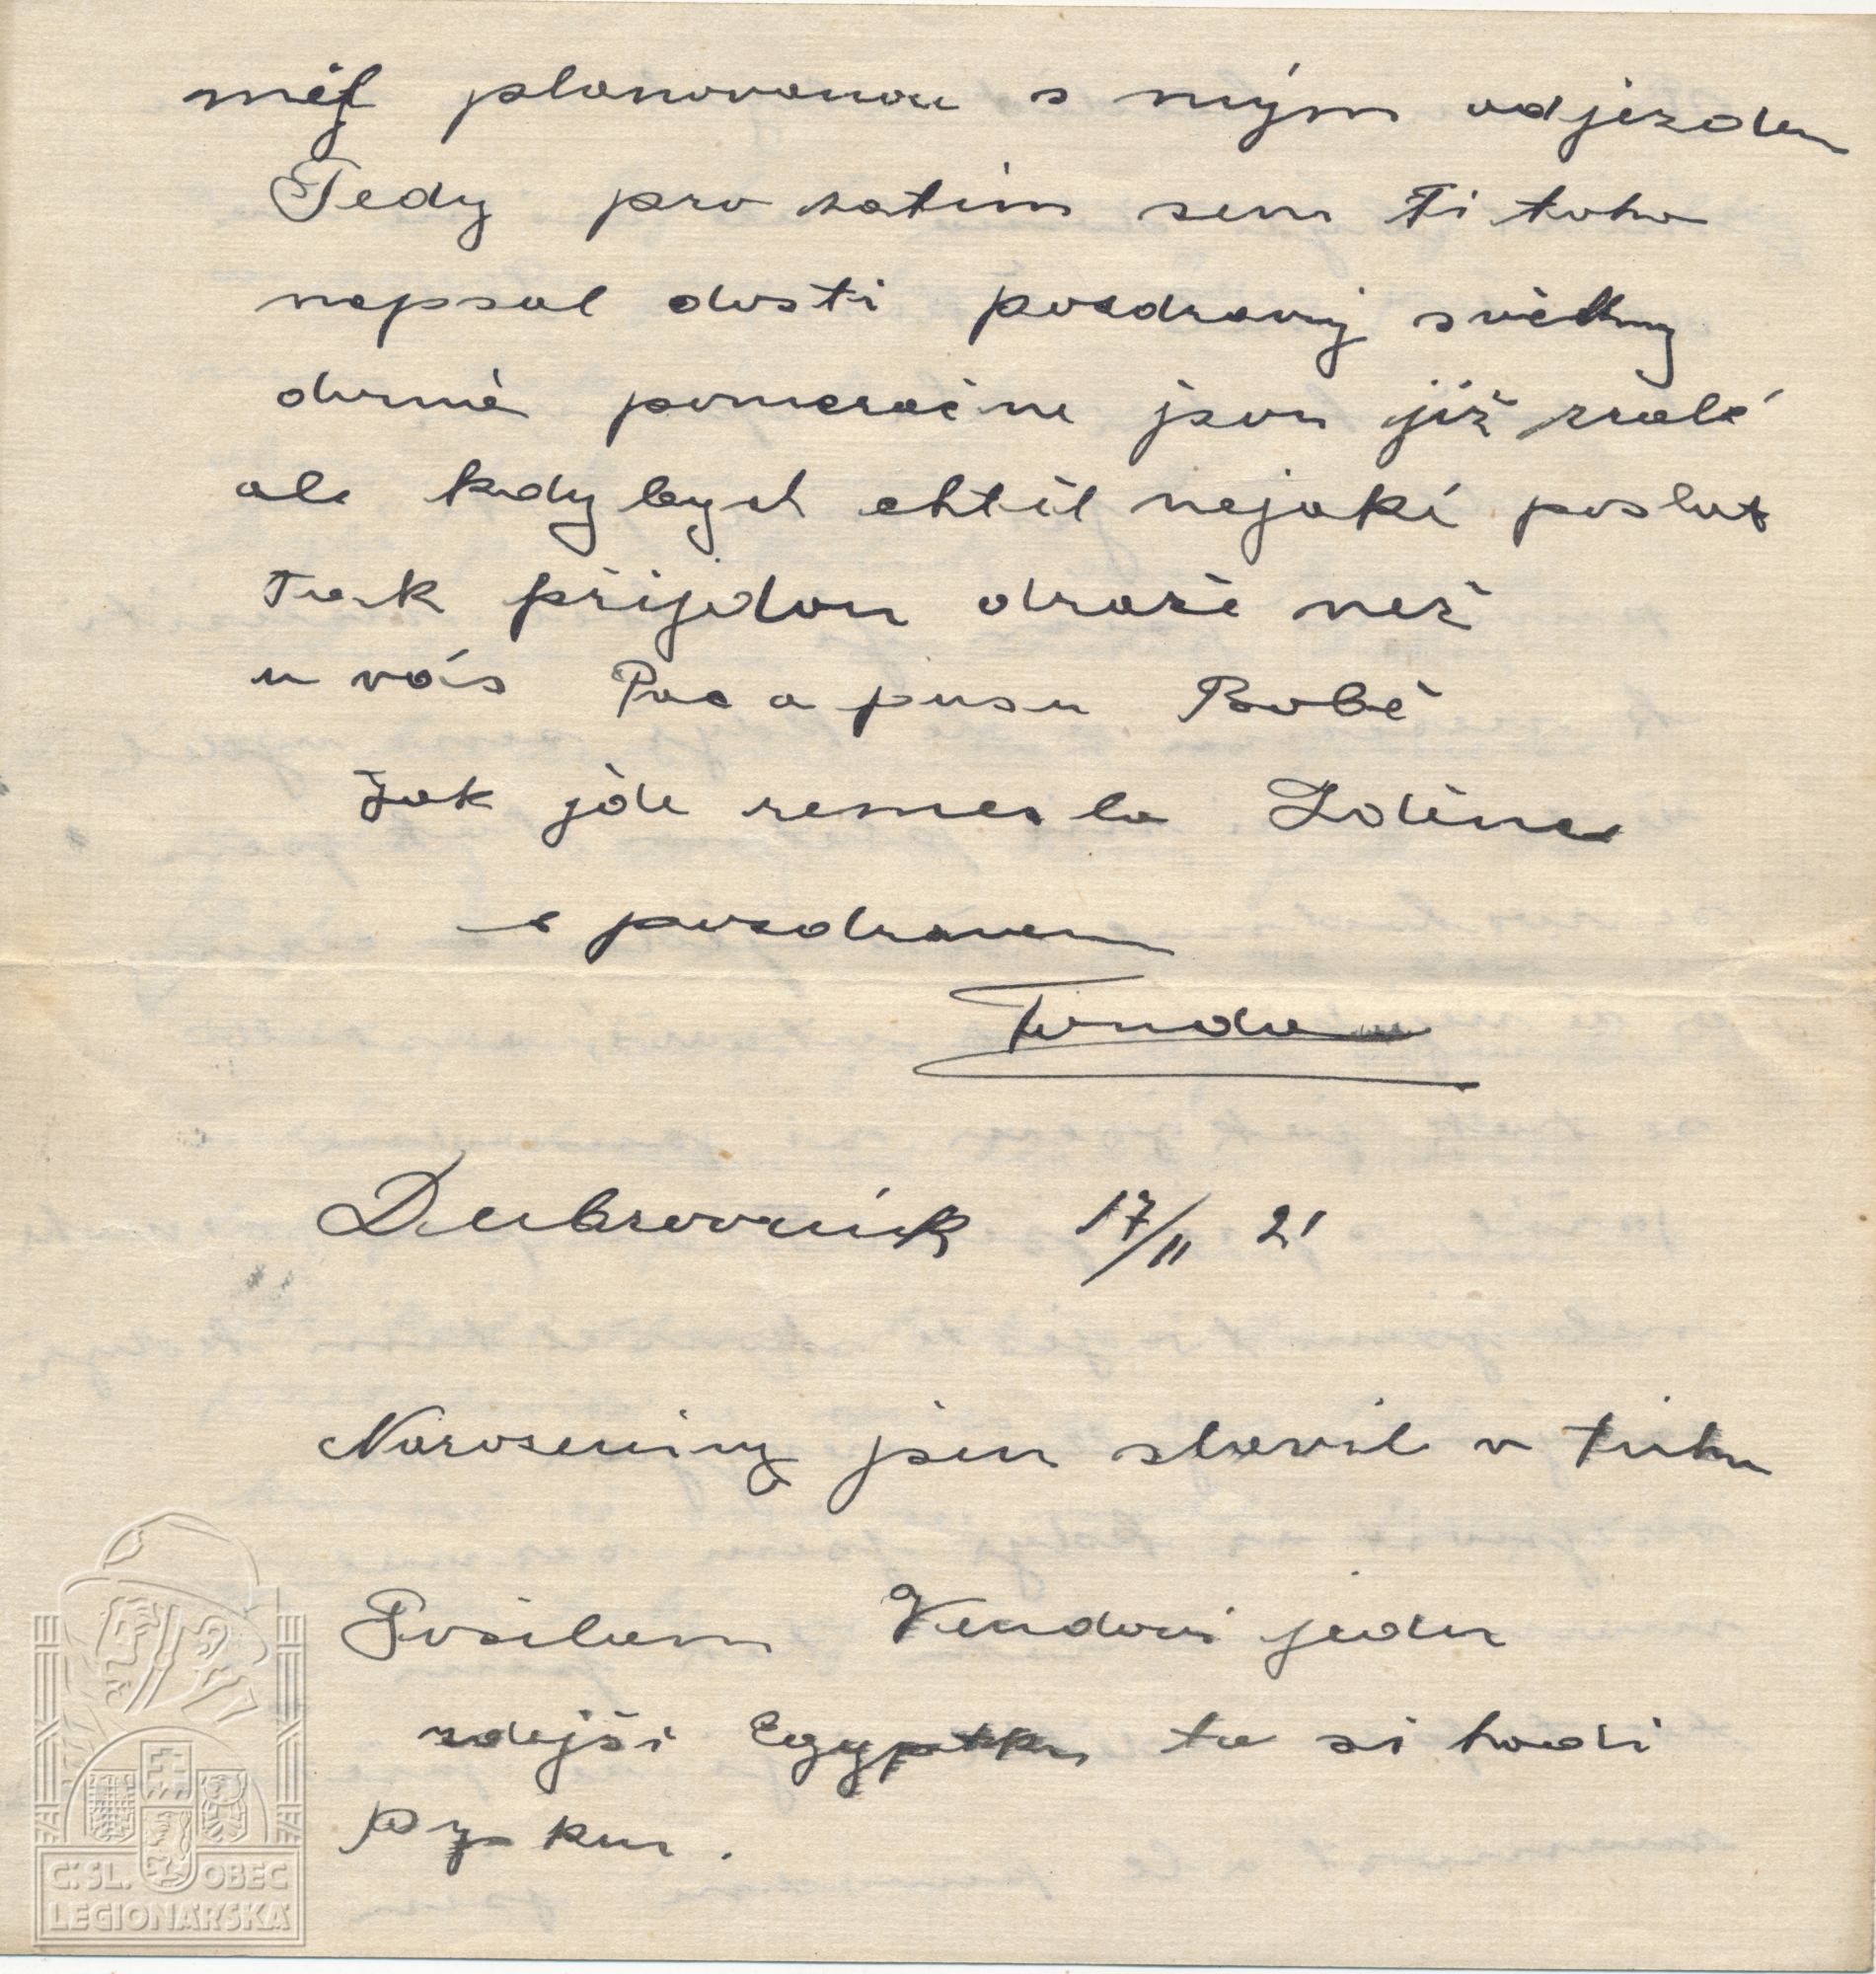 měl planovanou s mým odjezdem
Tedy pro zatim sem Ti toho
napsal dosti pozdravuj všechny
doma pomeranče jsou již zralé
ale kdy bych chtěl nejaké poslat
Tak přijdou draže než
u vás Pac a pusu Bobě
Jak jde remeslo Zdéna
s pozdravem
Tonda
Dubrovník 17/II 21
Narozeniny jsem slavil v tichu
Posilam Vendovi jednu
zdejší Egyptku ta si hodi
C.SL. OBEC
LEGIONÁŘSKÁ